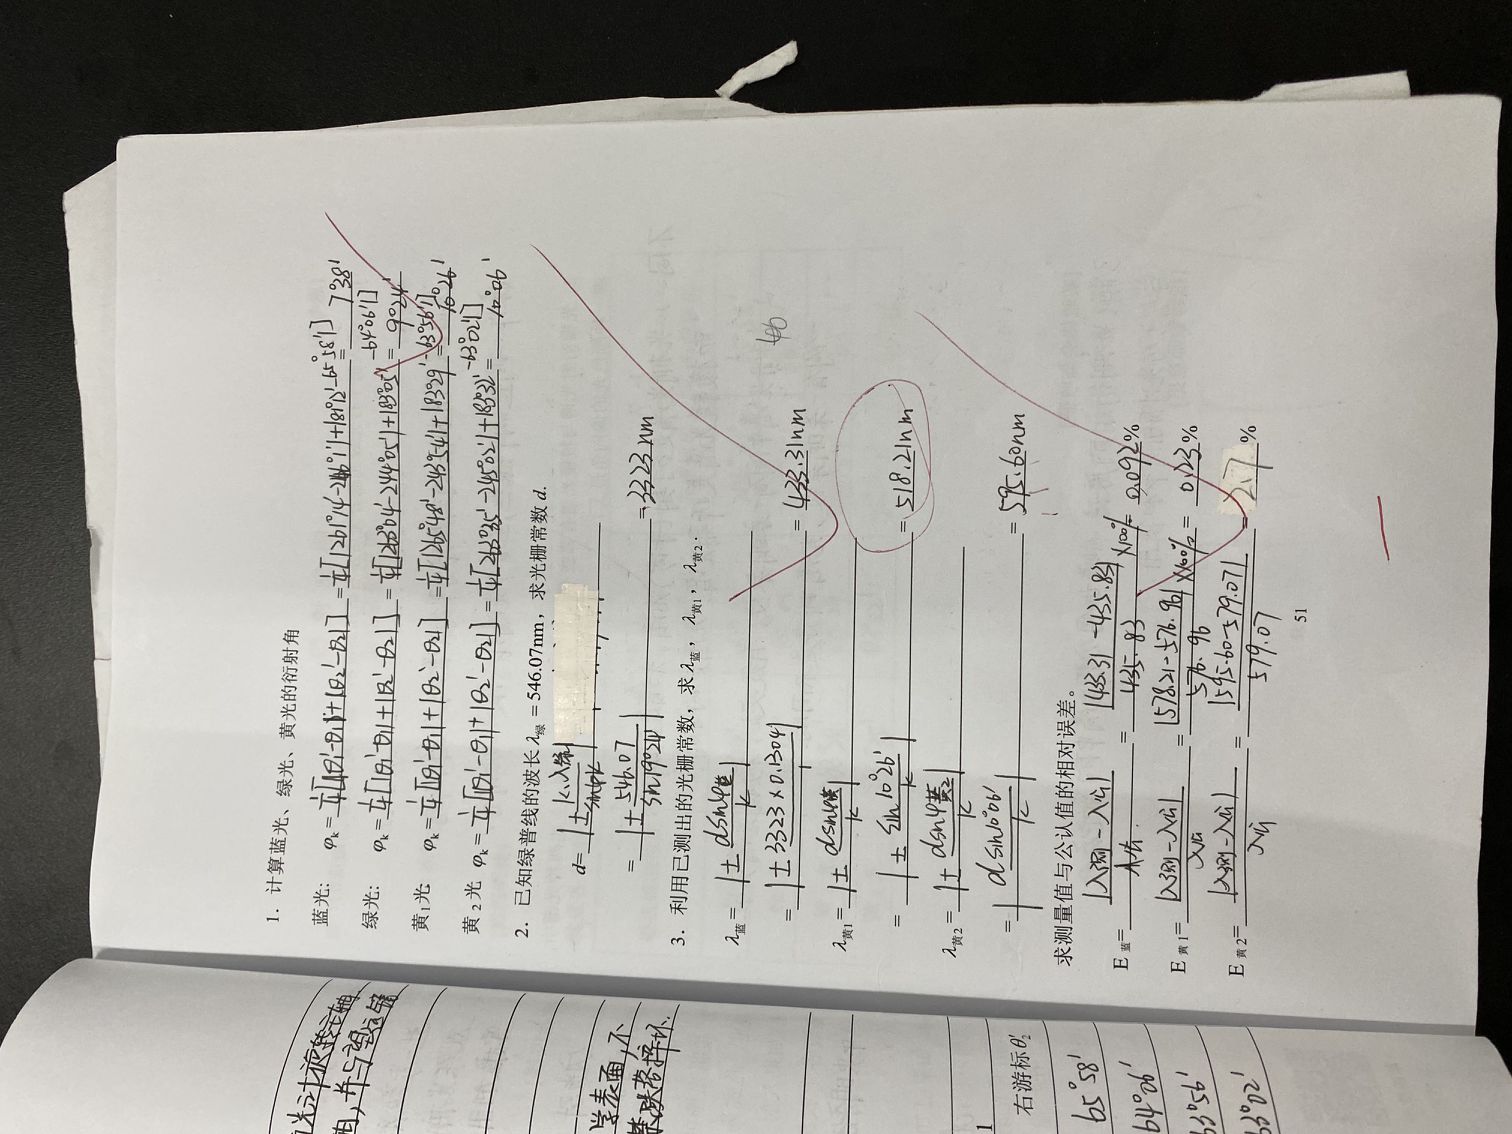 光计旋转主轴
轴,并与望远镜
学表面,不
禁跌落摔坏.
1
右游标θ₂′
65°58′
64°06′
63°56′
63°02′
1. 计算蓝光、绿光、黄光的衍射角
蓝光: φk = 1/4[|θ₁′-θ₁|+|θ₂′-θ₂|] = 1/4[|261°14′-246°1′|+|81°12′-65°58′|] = 7°38′
绿光: φk = 1/4[|θ₁′-θ₁|+|θ₂′-θ₂|] = 1/4[|263°04′-244°05′|+|83°05′-64°06′|] = 9°24′
黄1光 φk = 1/4[|θ₁′-θ₁|+|θ₂′-θ₂|] = 1/4[|265°48′-243°54′|+|83°29′-63°56′|] = 10°26′
黄2光 φk = 1/4[|θ₁′-θ₁|+|θ₂′-θ₂|] = 1/4[263°35′-245°02′|+|83°32′-63°02′|] = 10°06′
2. 已知绿普线的波长 λ绿 = 546.07nm,求光栅常数 d.
d= |± k·λ绿/sinφk|
= |± 546.07/sin9°24′| =3323nm
3. 利用已测出的光栅常数,求 λ蓝, λ黄1, λ黄2.
λ蓝= |± dsinφ蓝/k|
= |± 3323×0.1304/1| = 433.31nm
46
λ黄1= |± dsinφ黄/k|
= |± sin10°26′/k| = 518.21nm
λ黄2= |± dsinφ黄2/k|
= |dsin10°06′/k| = 595.60nm
求测量值与公认值的相对误差。
E蓝= |λ测-λ公|/λ公. = |433.31-435.83|/435.83 ×100% = 0.092%
E黄1= |λ测-λ公|/λ公 = |578.21-576.96|/576.96 ×100% = 0.23%
E黄2= |λ测-λ公|/λ公 = |595.60-579.07|/579.07 = 2.7%
51